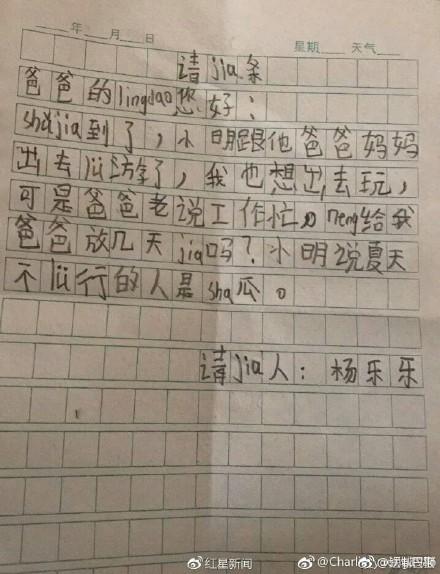 年 月 日 星期 天气
请jia条
爸爸的lingdao您好：
shǔjia到了，小明跟他爸爸妈妈
出去lü游了，我也想出去玩，
可是爸爸老说工作忙，neng给我
爸爸放几天jia吗？小明说夏天
不lü行的人是sha瓜。
请jia人：杨乐乐
红星新闻